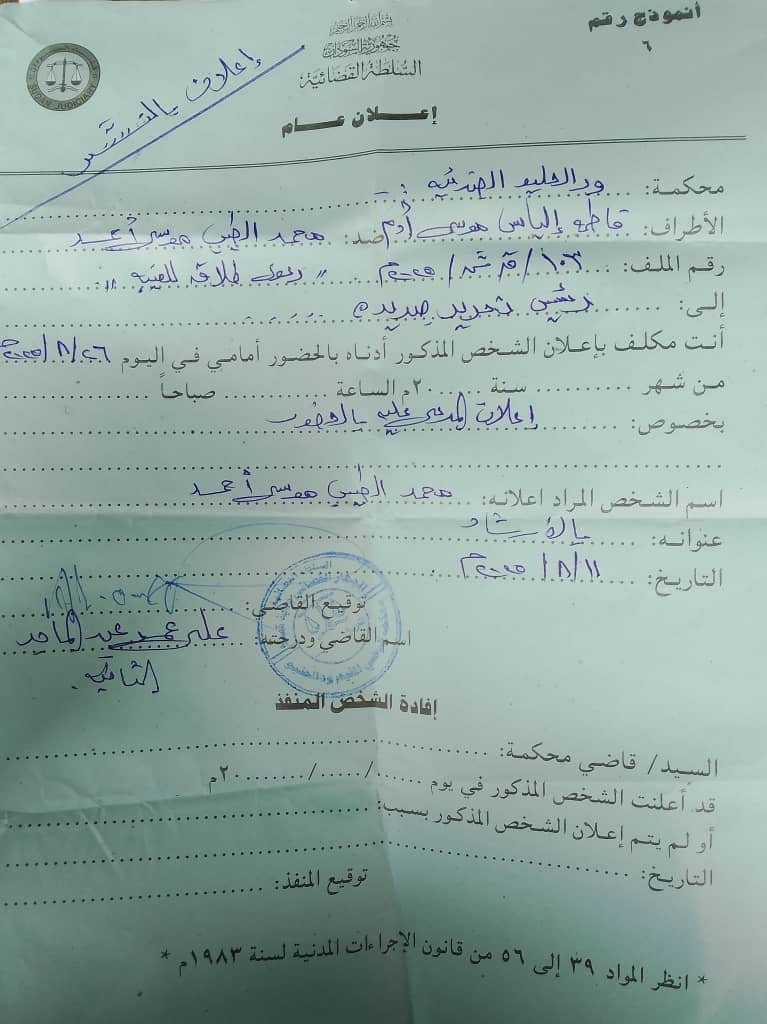 أنموذج رقم
٦
بسم الله الرحمن الرحيم
جمهورية السودان
السلطة القضائية
SUDAN JUDICIARY
إعلان بالنشر
إعـــلان عـــام
محكمة: ود الحليو الجزئية
الأطراف: فاطمة إلياس موسى آدم ضد: محمد الطيب موسى أحمد
رقم الملف: ١٠٣/ق ش/٢٠٢٥م "دعوى طلاق للغيبة"
إلى: رئيس تحرير جريدة
أنت مكلف بإعلان الشخص المذكور أدناه بالحضور أمامي في اليوم ٢٦/٨/٢٠٢٥م
من شهر .......... سنة ......٢٠م الساعة .......... صباحاً ..........
بخصوص: إعلان المدعى عليه بالحضور
اسم الشخص المراد اعلانه: محمد الطيب موسى أحمد
عنوانه:
التاريخ: ١١/٨/٢٠٢٥م
توقيع القاضي:
اسم القاضي ودرجته: علي عمر عبد الماجد
الثانية
إفادة الشخص المنفذ
السيد/ قاضي محكمة: ..........
قد أعلنت الشخص المذكور في يوم ....../....../......٢٠م
أو لم يتم إعلان الشخص المذكور بسبب: ..........
التاريخ: ..........
توقيع المنفذ: ..........
* انظر المواد ٣٩ إلى ٥٦ من قانون الإجراءات المدنية لسنة ١٩٨٣م *